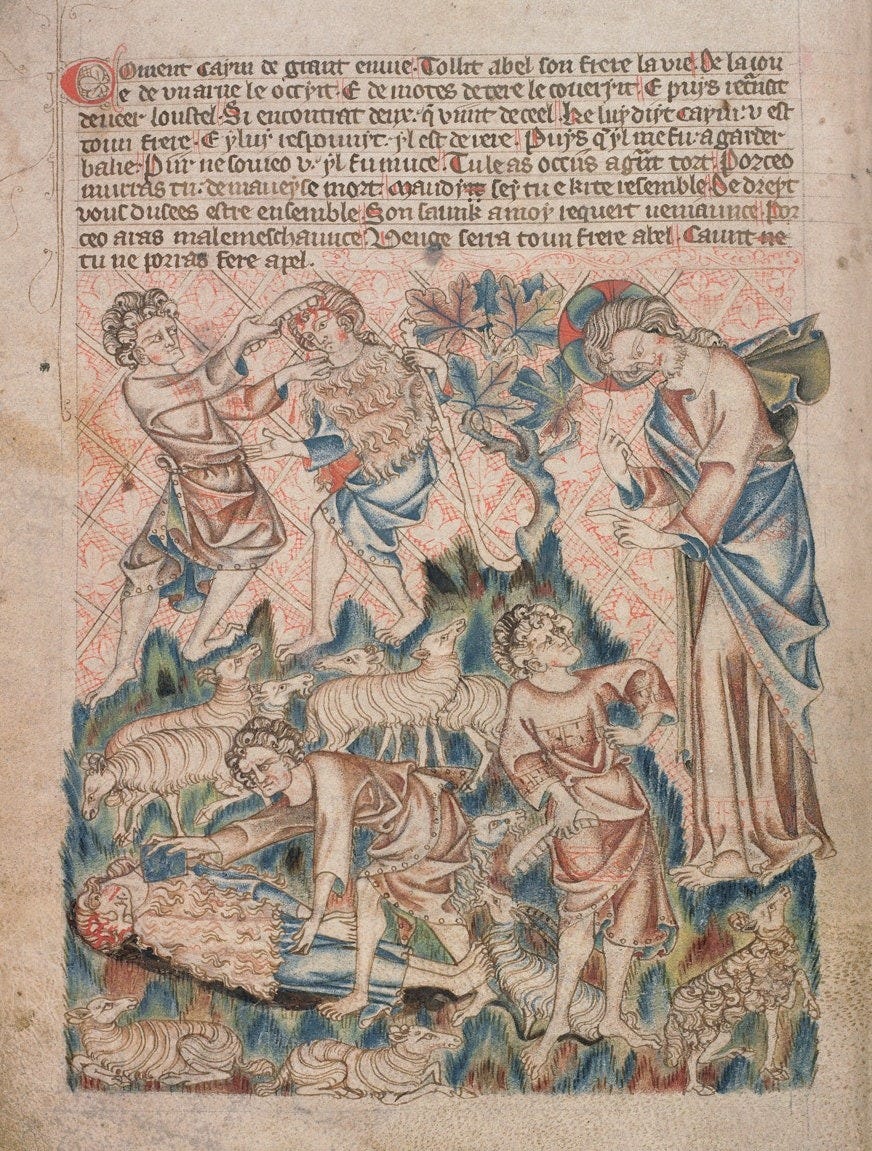 Coment Caym de graut enuie. Tollit abel son frere la vie. De la iou
e de vn arne le occyt. E de motes de tere le coueryt. E puys
de veer loustel. Si encontrat deux. q vint de ceel. Ke luy dyt Caym. v est
toun frere. E yluy respounyt. yl est de rere. Puys q yl me fu. a garder
balie. Pur ne souieo v. yl fu muce. Tu le as occis a graut tort. Por ceo
murras tu. de maueyse mort. Maudyt sey tu e ki te resemble. De dreyt
vous dusees estre ensemble. Son saunk a moy requert veniaunce. Por
ceo aras male meschaunce. Venge serra toun frere abel. Caunt ne
tu ne porras fere apel.